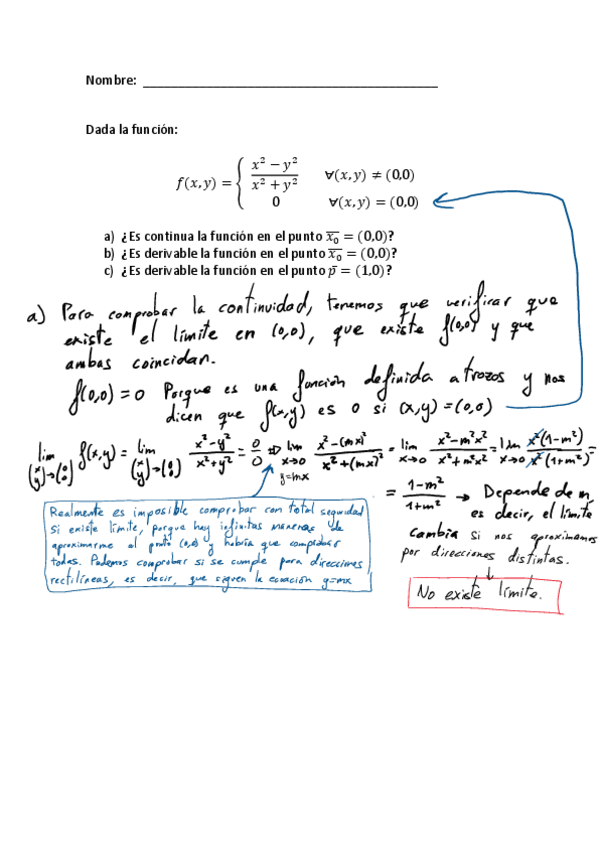 Nombre: ______________________________
Dada la función:
f(x,y) = { (x² − y²)/(x² + y²)   ∀(x,y) ≠ (0,0)
0   ∀(x,y) = (0,0)
a) ¿Es continua la función en el punto x̄₀ = (0,0)?
b) ¿Es derivable la función en el punto x̄₀ = (0,0)?
c) ¿Es derivable la función en el punto p̄ = (1,0)?
a) Para comprobar la continuidad, tenemos que verificar que
existe el límite en (0,0), que existe f(0,0) y que
ambas coincidan.
f(0,0) = 0 Porque es una función definida a trozos y nos
dicen que f(x,y) es 0 si (x,y) = (0,0)
lim (x y)→(0 0) f(x,y) = lim (x y)→(0 0) (x²−y²)/(x²+y²) = 0/0 ⇒ lim x→0 y=mx (x²−(mx)²)/(x²+(mx)²) = lim x→0 (x²−m²x²)/(x²+m²x²) = lim x→0 x²(1−m²)/x²(1+m²) =
= (1−m²)/(1+m²) → Depende de m
es decir, el límite
cambia si nos aproximamos
por direcciones distintas.
No existe límite.
Realmente es imposible comprobar con total seguridad
si existe límite, porque hay infinitas maneras de
aproximarme al punto (0,0) y habría que comprobar
todas. Podemos comprobar si se cumple para direcciones
rectilíneas, es decir, que siguen la ecuación y=mx